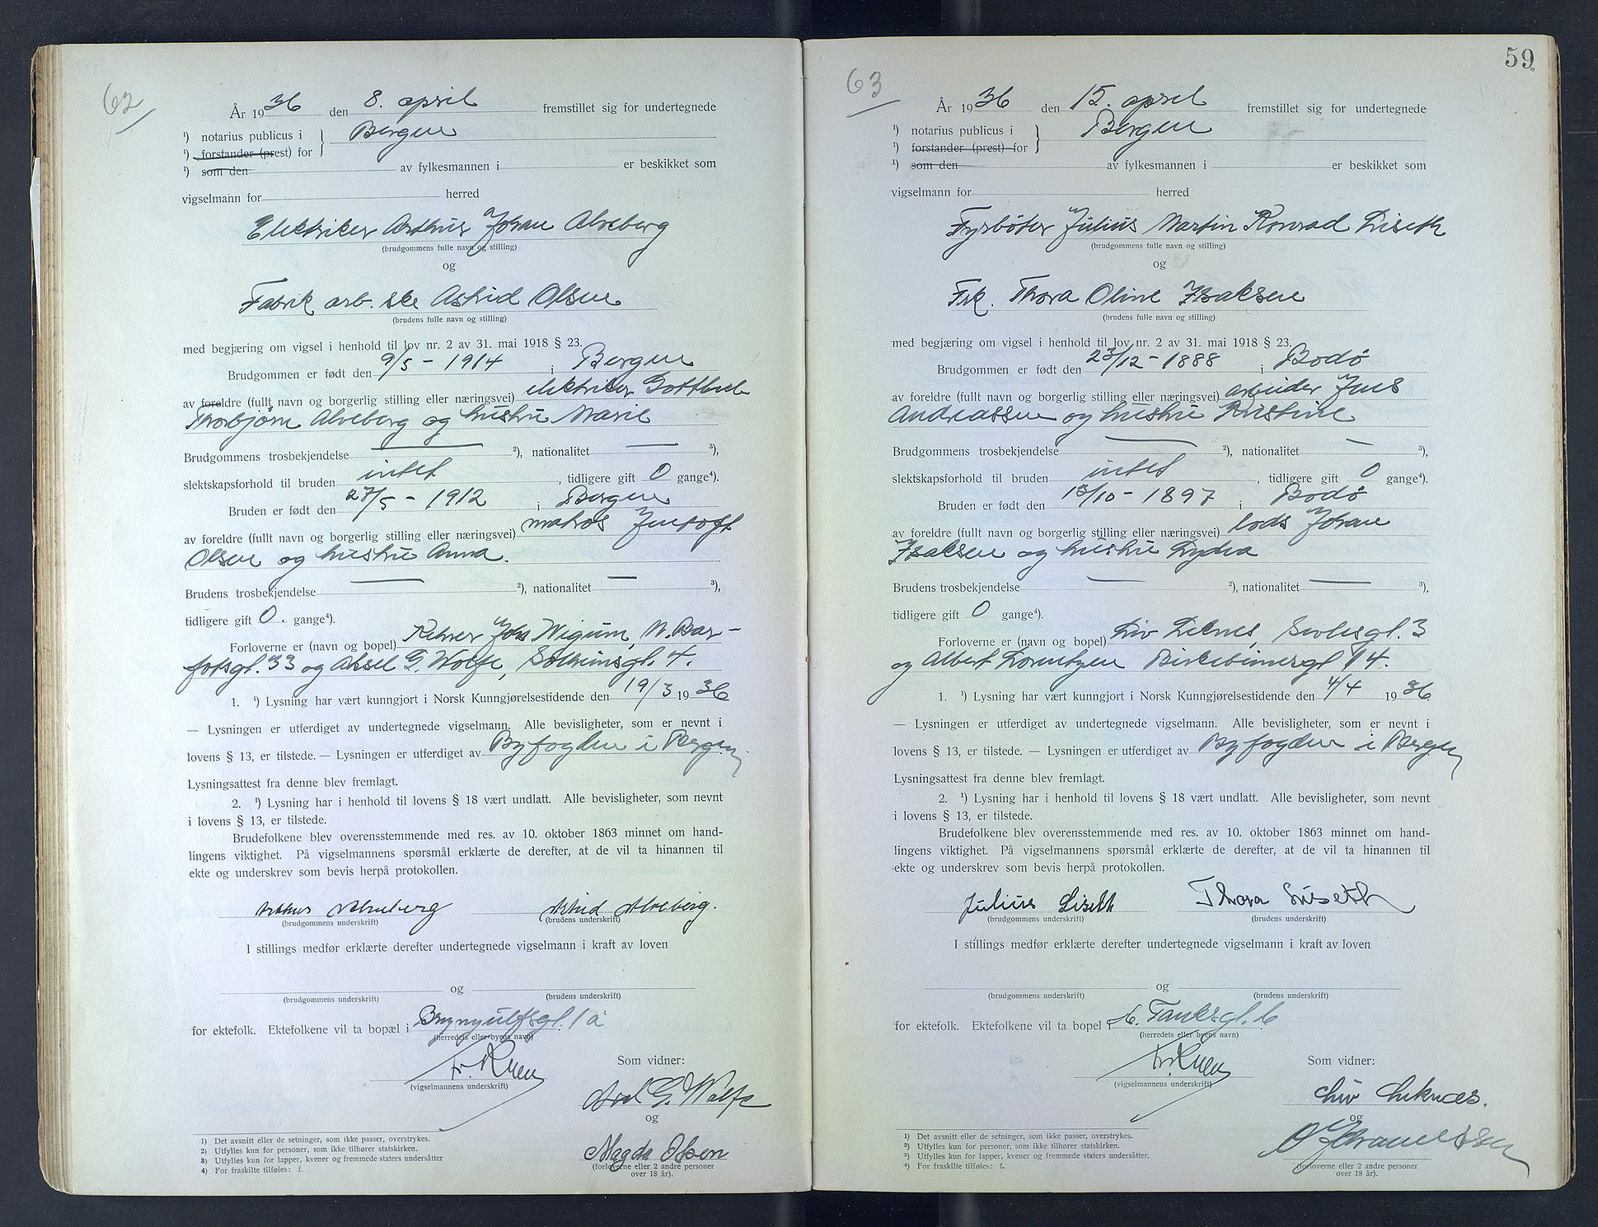 62
År 1936 den 8. april fremstillet sig for undertegnede
¹) notarius publicus i } Bergen
¹) forstander (prest) for
¹) som den av fylkesmannen i er beskikket som
vigselmann for herred
Elektriker Arthur Johan Alveberg
(brudgommens fulle navn og stilling)
og
Fabrik arb. ske Astrid Olsen
(brudens fulle navn og stilling)
med begjæring om vigsel i henhold til lov nr. 2 av 31. mai 1918 § 23.
Brudgommen er født den 9/5 - 1914 i Bergen
av foreldre (fullt navn og borgerlig stilling eller næringsvei) elektriker Gottlieb
Thorbjørn Alveberg og hustru Marie
Brudgommens trosbekjendelse — ²), nationalitet — ³),
slektskapsforhold til bruden intet, tidligere gift 0 gange⁴).
Bruden er født den 27/5 - 1912 i Bergen
av foreldre (fullt navn og borgerlig stilling eller næringsvei) matros
Olsen og hustru Anna.
Brudens trosbekjendelse — ²), nationalitet — ³),
tidligere gift 0. gange⁴).
Forloverne er (navn og bopel) Johs Wigum, N. Bar-
fotsgt. 33 og Aksel G. Wolfe, Solheimsgt. 4.
1. ¹) Lysning har vært kunngjort i Norsk Kunngjørelsestidende den 19/3 1936
— Lysningen er utferdiget av undertegnede vigselmann. Alle bevisligheter, som er nevnt i
lovens § 13, er tilstede. — Lysningen er utferdiget av Byfogden i Bergen.
Lysningsattest fra denne blev fremlagt.
2. ¹) Lysning har i henhold til lovens § 18 vært undlatt. Alle bevisligheter, som nevnt
i lovens § 13, er tilstede.
Brudefolkene blev overensstemmende med res. av 10. oktober 1863 minnet om hand-
lingens viktighet. På vigselmannens spørsmål erklærte de derefter, at de vil ta hinannen til
ekte og underskrev som bevis herpå protokollen.
Arthur Alveberg Astrid Alveberg.
(brudgommens underskrift) (brudens underskrift)
I stillings medfør erklærte derefter undertegnede vigselmann i kraft av loven
og
(brudgommens underskrift) (brudens underskrift)
for ektefolk. Ektefolkene vil ta bopæl i Brynjulfsgt. 1 a
(herredets eller byens navn)
Som vidner:
(vigselmannens underskrift)
Axel G. Wolfe
og
Magda Olsen
(forloverne eller 2 andre personer
over 18 år).
1) Det avsnitt eller de setninger, som ikke passer, overstrykes.
2) Utfylles kun for personer, som ikke tilhører statskirken.
3) Utfylles kun for lapper, kvener og fremmede staters undersåtter
4) For fraskilte tilføies: f.
63
59
År 1936 den 15. april fremstillet sig for undertegnede
¹) notarius publicus i } Bergen
¹) forstander (prest) for
¹) som den av fylkesmannen i er beskikket som
vigselmann for herred
Fyrbøter Julius Martin Konrad Liseth
(brudgommens fulle navn og stilling)
og
Frk. Thora Oline Isaksen
(brudens fulle navn og stilling)
med begjæring om vigsel i henhold til lov nr. 2 av 31. mai 1918 § 23.
Brudgommen er født den 23/12 - 1888 i Bodø
av foreldre (fullt navn og borgerlig stilling eller næringsvei) arbeider Jens
Andreassen og hustru Kristine
Brudgommens trosbekjendelse — ²), nationalitet — ³),
slektskapsforhold til bruden intet, tidligere gift 0 gange⁴).
Bruden er født den 13/10 - 1897 i Bodø
av foreldre (fullt navn og borgerlig stilling eller næringsvei) lods Johan
Isaksen og hustru Lydia
Brudens trosbekjendelse — ²), nationalitet — ³),
tidligere gift 0 gange⁴).
Forloverne er (navn og bopel) Liv Leknes, 3
og Albert Lorentzen Birkebeinergt 14.
1. ¹) Lysning har vært kunngjort i Norsk Kunngjørelsestidende den 4/4 1936
— Lysningen er utferdiget av undertegnede vigselmann. Alle bevisligheter, som er nevnt i
lovens § 13, er tilstede. — Lysningen er utferdiget av Byfogden i Bergen
Lysningsattest fra denne blev fremlagt.
2. ¹) Lysning har i henhold til lovens § 18 vært undlatt. Alle bevisligheter, som nevnt
i lovens § 13, er tilstede.
Brudefolkene blev overensstemmende med res. av 10. oktober 1863 minnet om hand-
lingens viktighet. På vigselmannens spørsmål erklærte de derefter, at de vil ta hinannen til
ekte og underskrev som bevis herpå protokollen.
Julius Liseth Thora Liseth
(brudgommens underskrift) (brudens underskrift)
I stillings medfør erklærte derefter undertegnede vigselmann i kraft av loven
og
(brudgommens underskrift) (brudens underskrift)
for ektefolk. Ektefolkene vil ta bopel i C. Tanksgt. 6
(herredets eller byens navn)
Som vidner:
(vigselmannens underskrift)
Liv Leknes.
og
(forloverne eller 2 andre personer
over 18 år).
1) Det avsnitt eller de setninger, som ikke passer, overstrykes.
2) Utfylles kun for personer, som ikke tilhører statskirken.
3) Utfylles kun for lapper, kvener og fremmede staters undersåtter.
4) For fraskilte tilføies: f.